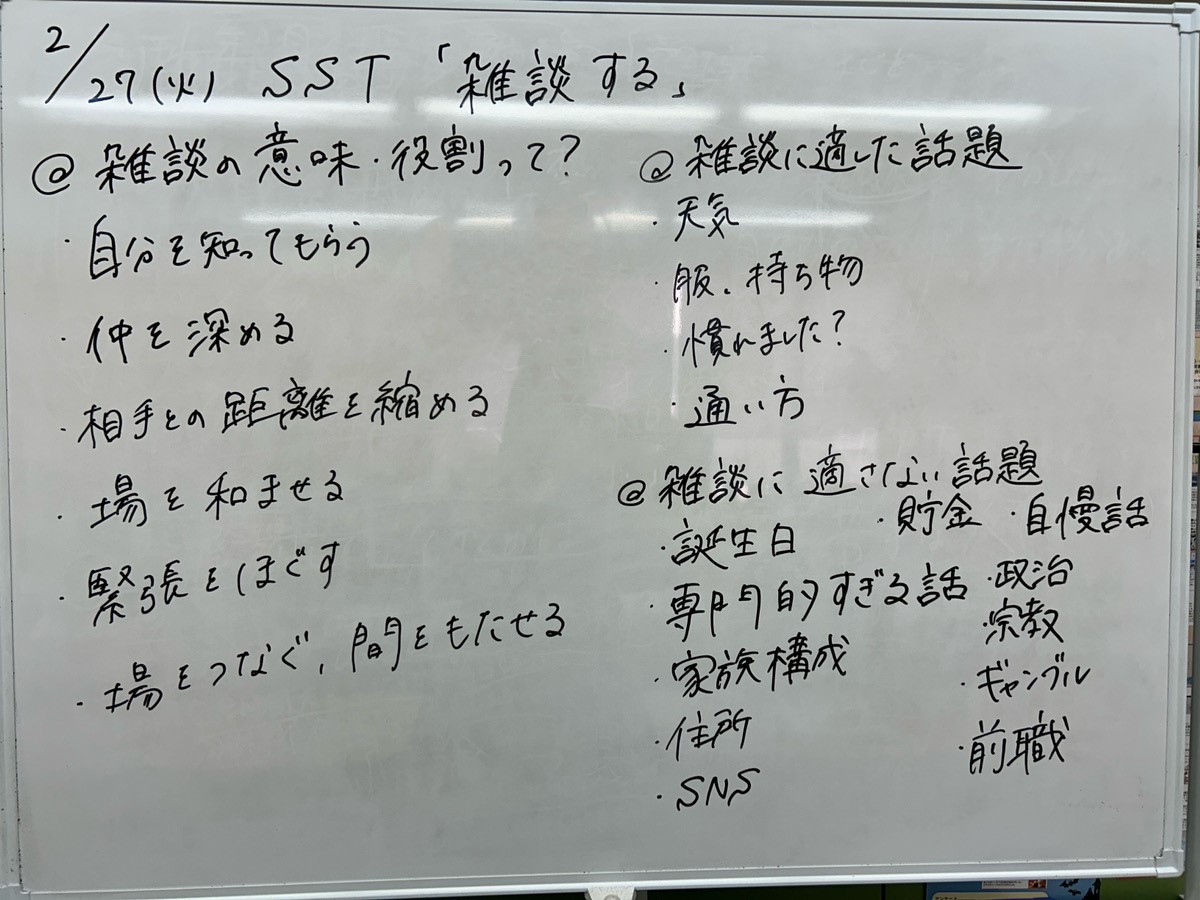 2/27(火) SST 「雑談する」
@ 雑談の意味・役割って?
・自分を知ってもらう
・仲を深める
・相手との距離を縮める
・場を和ませる
・緊張をほぐす
・場をつなぐ、間をもたせる
@ 雑談に適した話題
・天気
・服、持ち物
・慣れました?
・通い方
@ 雑談に適さない話題
・誕生日
・専門的すぎる話
・家族構成
・住所
・SNS
・貯金 ・自慢話
・政治
・宗教
・ギャンブル
・前職